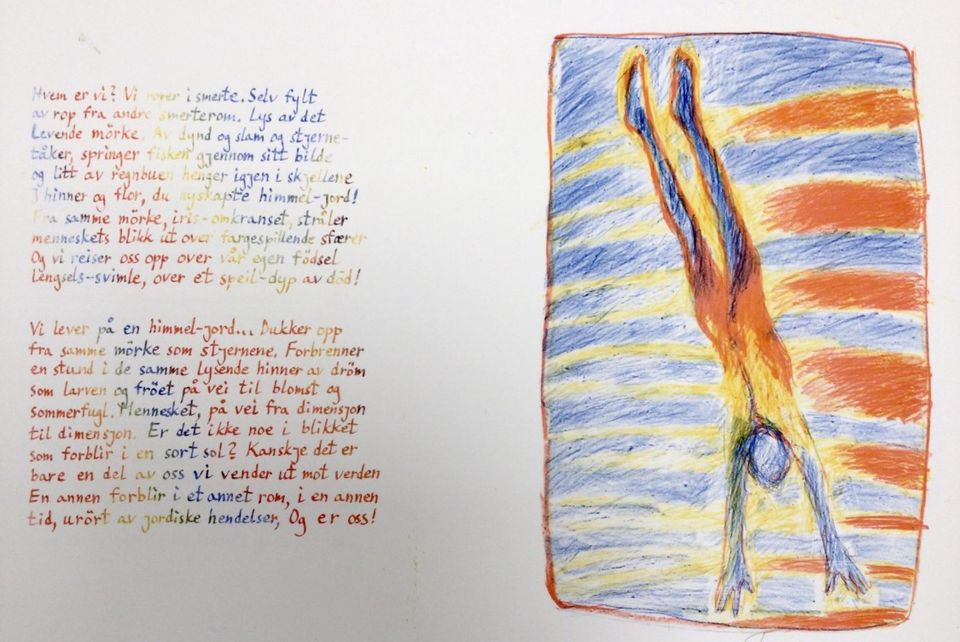 Hvem er vi? Vi roper i smerte. Selv fylt
av rop fra andre smerterom. Lys av det
Levende mörke. Av dynd og slam og stjerne-
tåker, springer fisken gjennom sitt bilde
og litt av regnbuen henger igjen i skjellene
I hinner og flor, du nyskapte himmel-jord!
Fra samme mörke, iris-omkranset, stråler
menneskets blikk ut over fargespillende sfærer
Og vi reiser oss opp over vår egen födsel
Lengsels-svimle, over et speil-dyp av död!
Vi lever på en himmel-jord... Dukker opp
fra samme mörke som stjernene. Forbrenner
en stund i de samme lysende hinner av dröm
som larven og fröet på vei til blomst og
sommerfugl. Mennesket, på vei fra dimensjon
til dimensjon. Er det ikke noe i blikket
som forblir i en sort sol? Kanskje det er
bare en del av oss vi vender ut mot verden
En annen forblir i et annet rom, i en annen
tid, urört av jordiske hendelser, Og er oss!